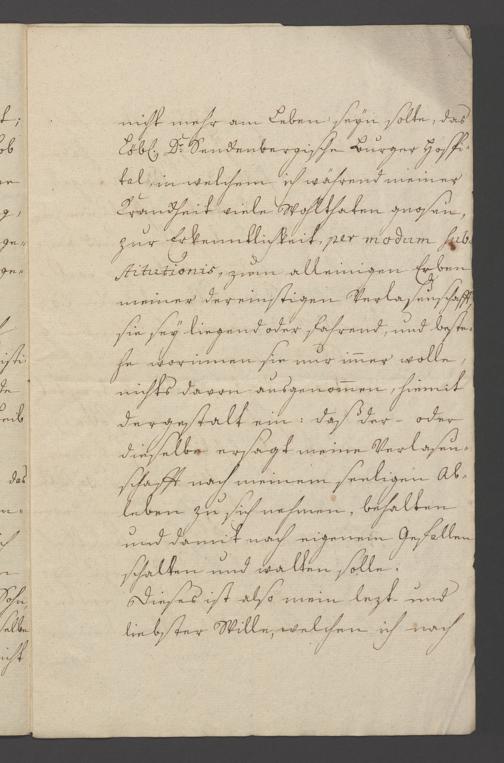 t;
ob
ge-
ge-
isti
de
das
Sohn
selbe
nicht
nicht mehr am Leben seyn solte, das
Löbl. Dr. Senckenbergische Burger Hospi-
tal, in welchem ich während meiner
Kranckheit viele Wohlthaten genosen,
zur Erkenntlichkeit, per modum sub-
stitutionis, zum alleinigen Erben
meiner dereinstigen Verlasenschafft,
sie sey liegend oder fahrend, und beste-
he worinnen sie nur immer wolle,
nichts davon ausgenommen, hiemit
dergestalt ein: daß der- oder
dieselbe ersagt meine Verlasen-
schafft nach meinem seeligen Ab-
leben zu sich nehmen, behalten
und damit nach eigenem Gefallen
schalten und walten solle.
Dieses ist also mein lezt- und
liebster Wille, welchen ich nach